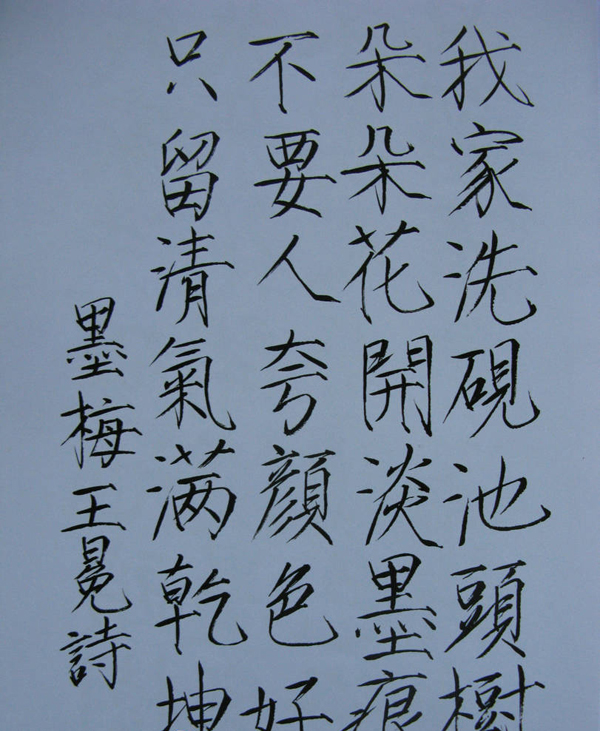 我家洗硯池頭樹
朵朵花開淡墨痕
不要人夸顏色好
只留清氣满乾坤
墨梅王冕詩